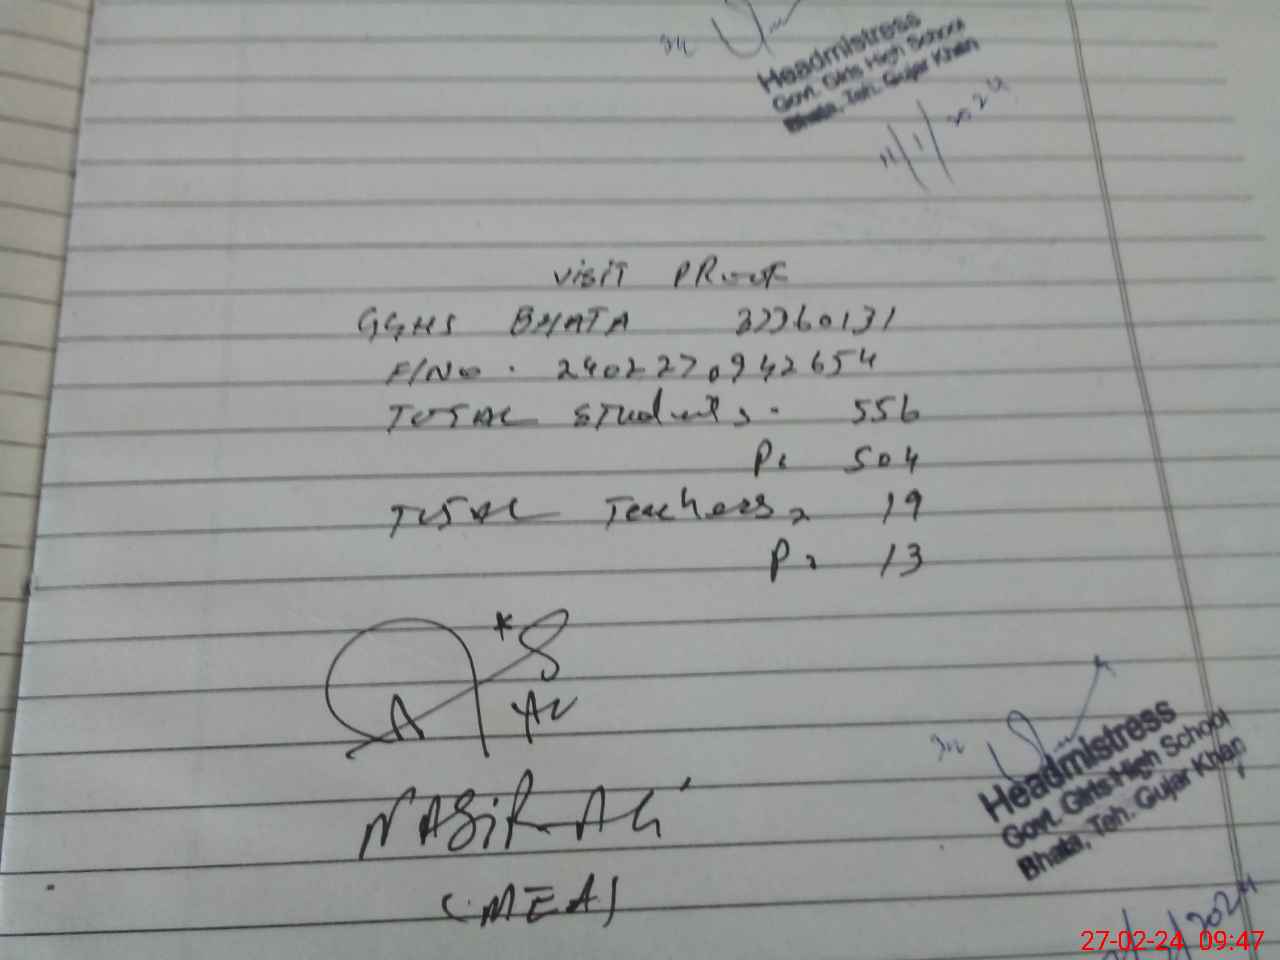 Headmistress
Govt. Girls High School
Bhata, Teh. Gujar Khan
11/1/2024
Visit Proof
GGHS BHATA 37360131
F/No. 2402270942654
TOTAL Students. 556
P: 504
TOTAL Teachers 19
P: 13
NASIR ALI
(MEA)
Headmistress
Govt. Girls High School
Bhata, Teh. Gujar Khan
27-02-24 09:47